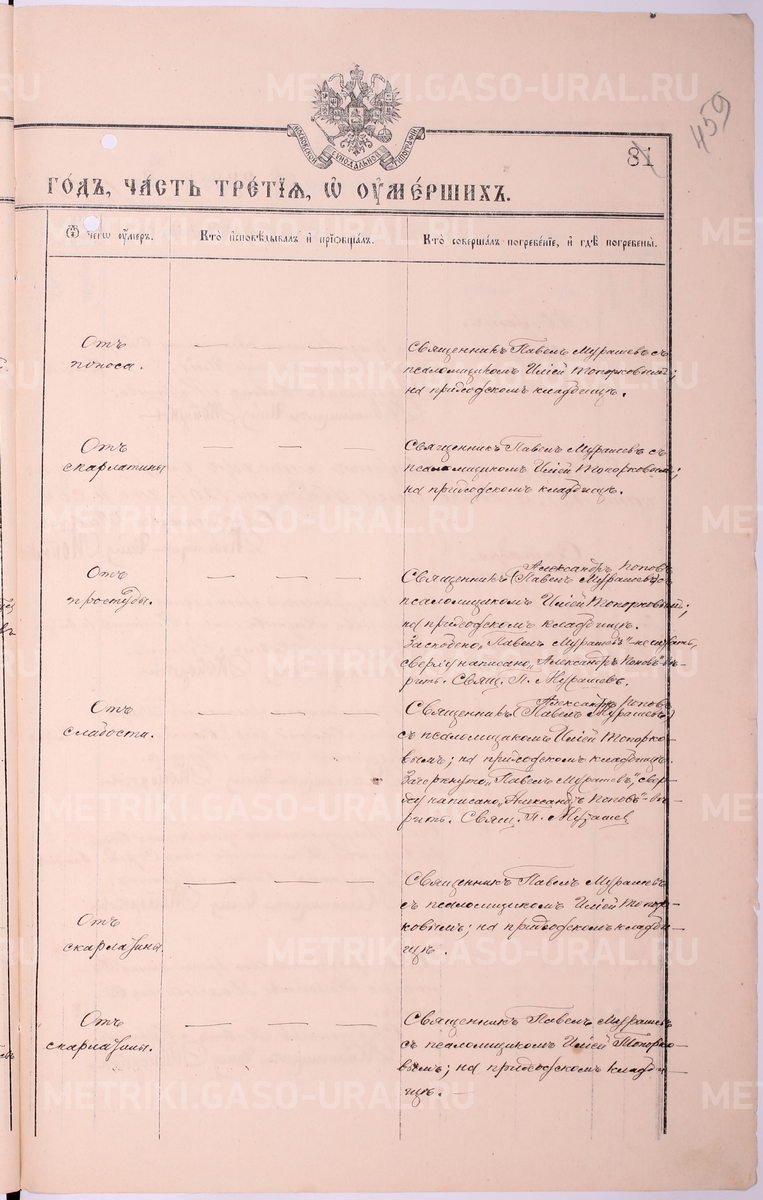 METRIKI.GASO-URAL.RU
459
МОСКОВСКОЙ СѴНОДАЛЬНОЙ ТИПОГРАФІИ
81
ГО́ДЪ, ЧА́СТЬ ТРЕ́ТІЯ, Ѡ ОУ҆МЕ́РШИХЪ.
Ѿ чегѡ оу҆́меръ.
Кто̀ и҆сповѣ́дывалъ и҆ прїѡбща́лъ.
Кто̀ соверша́лъ погребе́нїе, и҆ гдѣ̀ погребены̀.
Отъ
поноса.
— — —
Священникъ Павелъ Мурашевъ съ
псаломщикомъ Иліей Топорковымъ;
на приходскомъ кладбищѣ.
Отъ
скарлатины
— — —
Священникъ Павелъ Мурашевъ съ
псаломщикомъ Иліей Топорковымъ;
на приходскомъ кладбищѣ.
Отъ
простуды.
— — —
Александръ Поповъ
Священникъ (Павелъ Мурашевъ) съ
псаломщикомъ Иліей Топорковымъ;
на приходскомъ кладбищѣ.
"Павелъ Мурашевъ"
сверху написано "Александръ Поповъ" вѣ-
рить. Свящ. П. Мурашевъ.
Отъ
слабости.
— — —
Александръ Поповъ
Священникъ (Павелъ Мурашевъ)
съ псаломщикомъ Иліей Топорко-
вымъ; на приходскомъ кладбищѣ.
Зачеркнуто "Павелъ Мурашевъ", свер-
ху написано "Александръ Поповъ" вѣ-
рить. Свящ. П. Мурашев
Отъ
скарлатины.
— — —
Священникъ Павелъ Мурашевъ
съ псаломщикомъ Иліей Топор-
ковымъ; на приходскомъ кладби-
щѣ.
Отъ
скарлатины.
— — —
Священникъ Павелъ Мурашевъ
съ псаломщикомъ Иліей Топорко-
вымъ; на приходскомъ кладби-
щѣ. —